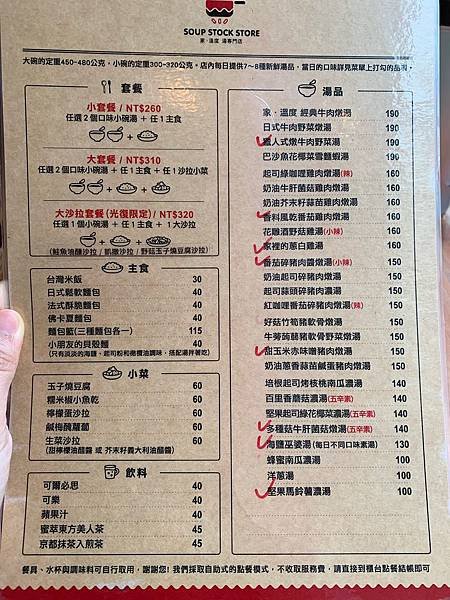 SOUP STOCK STORE
家·溫度 湯專門店
大碗的定重450-480公克，小碗的定重300-320公克。店內每日提供7~8種新鮮湯品，當日的口味詳見菜單上打勾的品項。
套餐
小套餐 / NT$260
任選2個口味小碗湯 + 任1主食
大套餐 / NT$310
任選2個口味小碗湯 + 任1主食 + 任1沙拉小菜
大沙拉套餐(光復限定) / NT$320
任選1個小碗湯 + 任1主食 + 1大沙拉
(鮭魚油醋沙拉 / 凱撒沙拉 / 野菇玉子燒豆腐沙拉)
主食
台灣米飯 30
日式鬆軟麵包 40
法式酥脆麵包 40
佛卡夏麵包 40
麵包籃(三種麵包各一) 115
小朋友的貝殼麵 40
(只有淡淡的海鹽、起司粉和橄欖油調味，搭配湯拌著吃)
小菜
玉子燒豆腐 60
糯米椒小魚乾 60
檸檬蛋沙拉 60
鹹梅醃蘿蔔 60
生菜沙拉 60
(甜檸檬油醋醬 或 芥末籽義大利油醋醬)
飲料
可爾必思 40
可樂 40
蘋果汁 40
蜜萃東方美人茶 45
京都抹茶入煎茶 45
湯品
家·溫度 經典牛肉燉湯 190
日式牛肉野菜燉湯 190
職人式燉牛肉野菜湯 190
巴沙魚花椰菜雪麵蝦湯 190
起司綠咖哩雞肉燉湯(辣) 160
奶油牛肝菌菇雞肉燉湯 160
奶油芥末籽蒜苗雞肉燉湯 160
香料風乾番茄雞肉燉湯 160
花雕酒野菇雞湯(小辣) 160
家裡的蔥白雞湯 160
番茄碎豬肉醬燉湯(小辣) 150
奶油起司碎豬肉燉湯 150
起司蒜頭碎豬肉濃湯 150
紅咖哩番茄碎豬肉燉湯(辣) 150
好菇竹筍豬軟骨燉湯 150
牛蒡蒟蒻豬軟骨野菜燉湯 150
甜玉米赤味噌豬肉燉湯 150
奶油蔥香蒜苗鹹蛋豬肉燉湯 150
培根起司烤核桃南瓜濃湯 140
百里香蘑菇濃湯(五辛素) 140
堅果起司綠花椰菜濃湯(五辛素) 140
多種菇牛肝菌菇燉湯(五辛素) 140
海鹽巫婆湯(每日不同口味素湯) 130
蜂蜜南瓜濃湯 100
洋蔥湯 100
堅果馬鈴薯濃湯 100
餐具、水杯與調味料可自行取用，謝謝您! 我們採取自助式的點餐模式，不收取服務費，請直接到櫃台點餐結帳即可